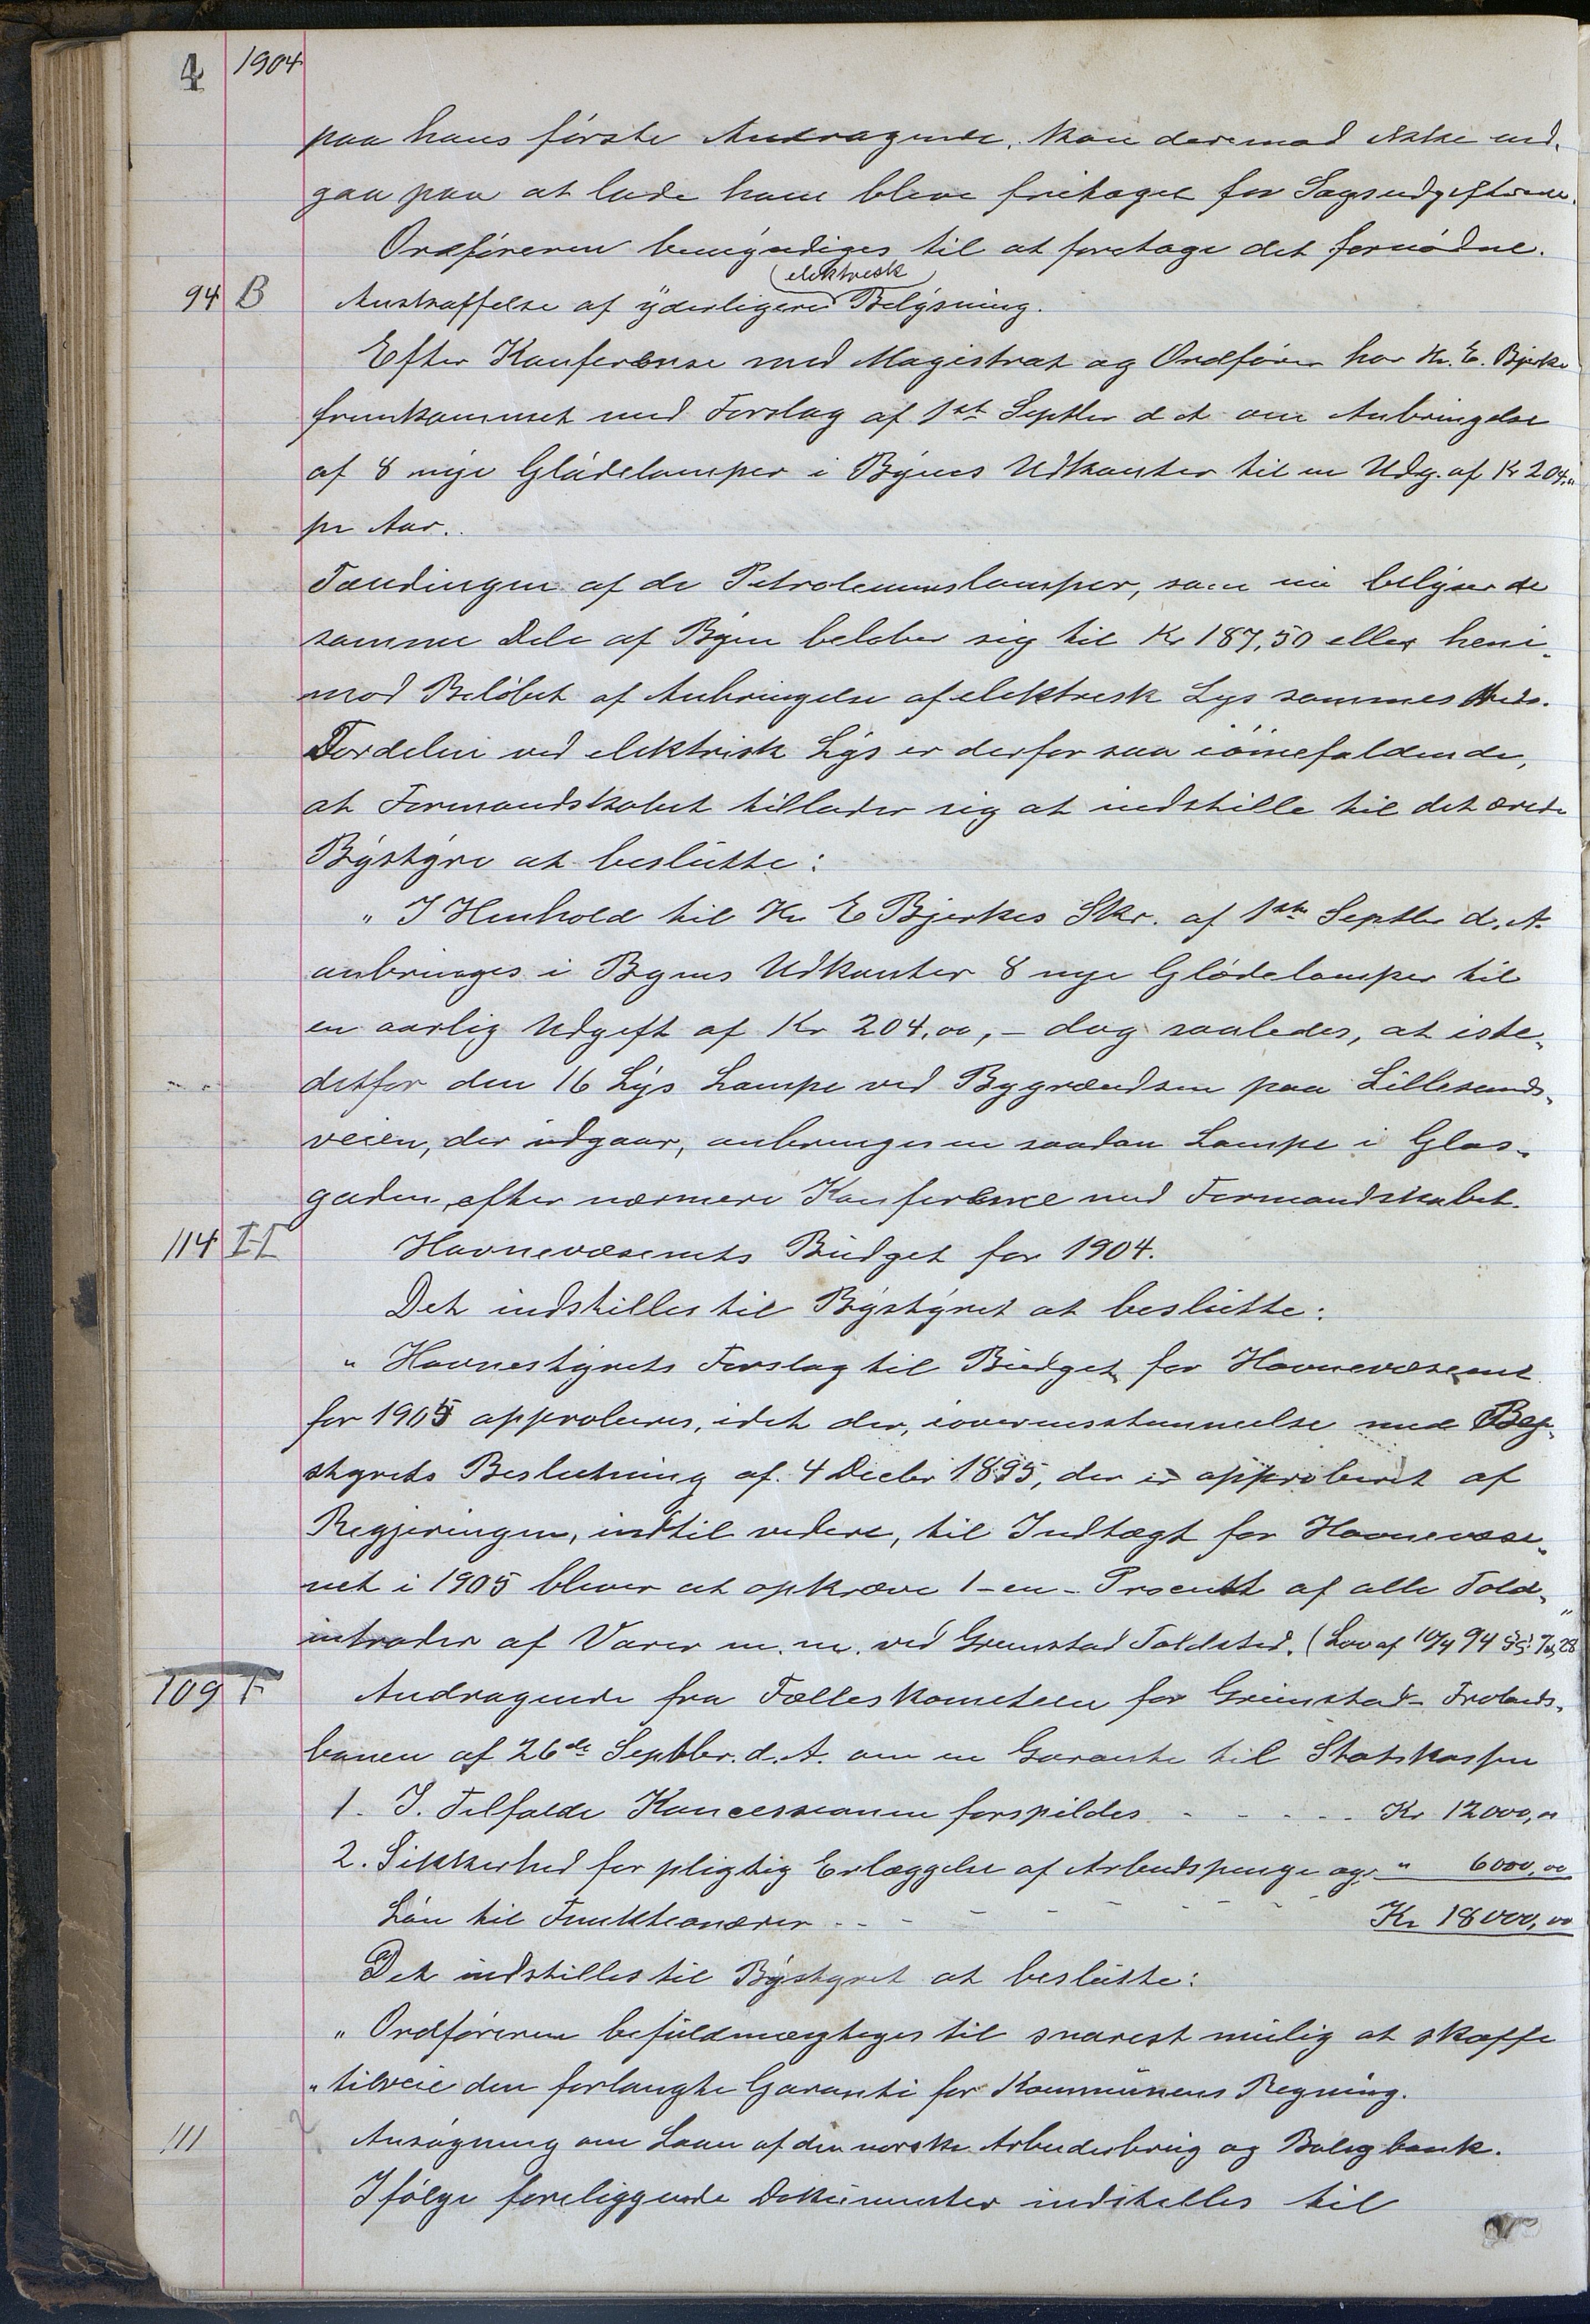 4 1904
paa hans første Andragende, kan deremod ikke ind-
gaa paa at lade ham bleve fritaget for Sagsudgifterne.
Ordføreren bemyndiges til at foretage det fornødne.
elektrisk
94 B Anskaffelse af yderligere Belysning.
Efter Konferense med Magistrat og Ordfører har Hr. E. Bjerke
fremkommet med Forslag af 1st Septbr d A om Anbringelse
af 8 nye Glødelamper i Byens Udkanter til en Udg. af Kr 204,"
pr Aar.
Tændingen af de Petroleumslamper, som nu belyser de
samme Dele af Byen beløber sig til Kr 187,50 eller heni-
mod Beløbet af Anbringelse af elektrisk Lys sammesteds.
Fordelen ved elektrisk Lys er derfor saa iøinefaldende,
at Formandskabet tillader sig at indstille til det ærede
Bystyre at beslutte:
" I Henhold til Hr E Bjerkes Skr. af 1ste Septbr d. A.
anbringes i Byens Udkanter 8 nye Glødelamper til
en aarlig Udgift af Kr 204,00, – dog saaledes, at iste-
detfor den 16 Lys Lampe ved Bygrændsen paa Lillesands-
veien, der udgaar, anbringes en saadan Lampe i Glas-
gaden, efter nærmere Konferense med Formandskabet.
114 H Havnevæsenets Budget for 1904.
Det indstilles til Bystyret at beslutte:
" Havnestyrets Forslag til Budget for Havnevæsenet
for 1905 approberes, idet der, ioverensstemmelse med By-
styrets Beslutning af 4 Decbr 1895, der er approberet af
Regjeringen, indtil videre, til Indtægt for Havnevæse-
net i 1905 bliver at opkræve 1-en-Procent af alle Told-
intrader af Varer m.m. ved Grimstad Toldsted. (Lov af 10/7 94 §§ 7 28 "
109 F Andragende fra Felleskomiteen for Grimstad-Frolands-
banen af 26de Septbr. d. A. om en Garanti til Statskassen
1. I. Tilfælde Koncessionen forspildes - - - - - Kr 12000,"
2. Sikkerhed for pligtig Erlæggelse af Arbeidspenge og " 6000,00
Løn til Funktionærer - - - - - - - Kr 18000,00
Det indstilles til Bystyret at beslutte:
" Ordføreren befuldmægtiges til snarest mulig at skaffe
" tilveie den forlangte Garanti for Kommunens Regning.
111 Ansøgning om Laan af den norske Arbeiderbrug og Boligbank.
Ifølge foreliggende Dokumenter indstilles til